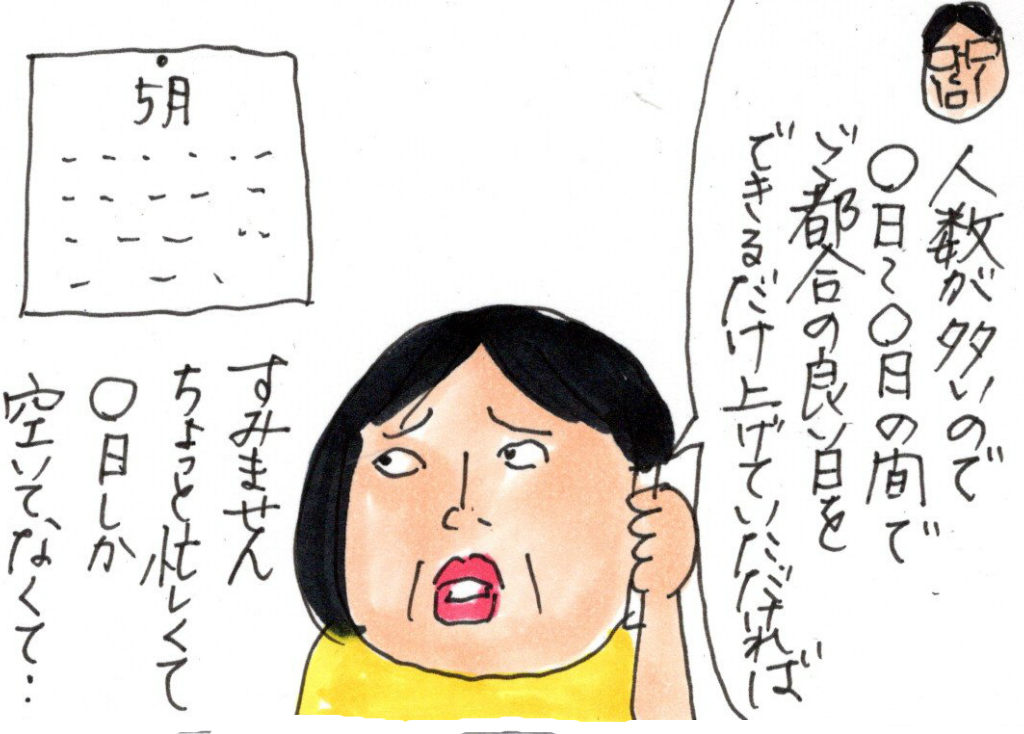 人数が多いので
〇日〜〇日の間で
ご都合の良い日を
できるだけ上げていただければ
5月
すみません
ちょっと忙しくて
〇日しか
空いて、なくて・・